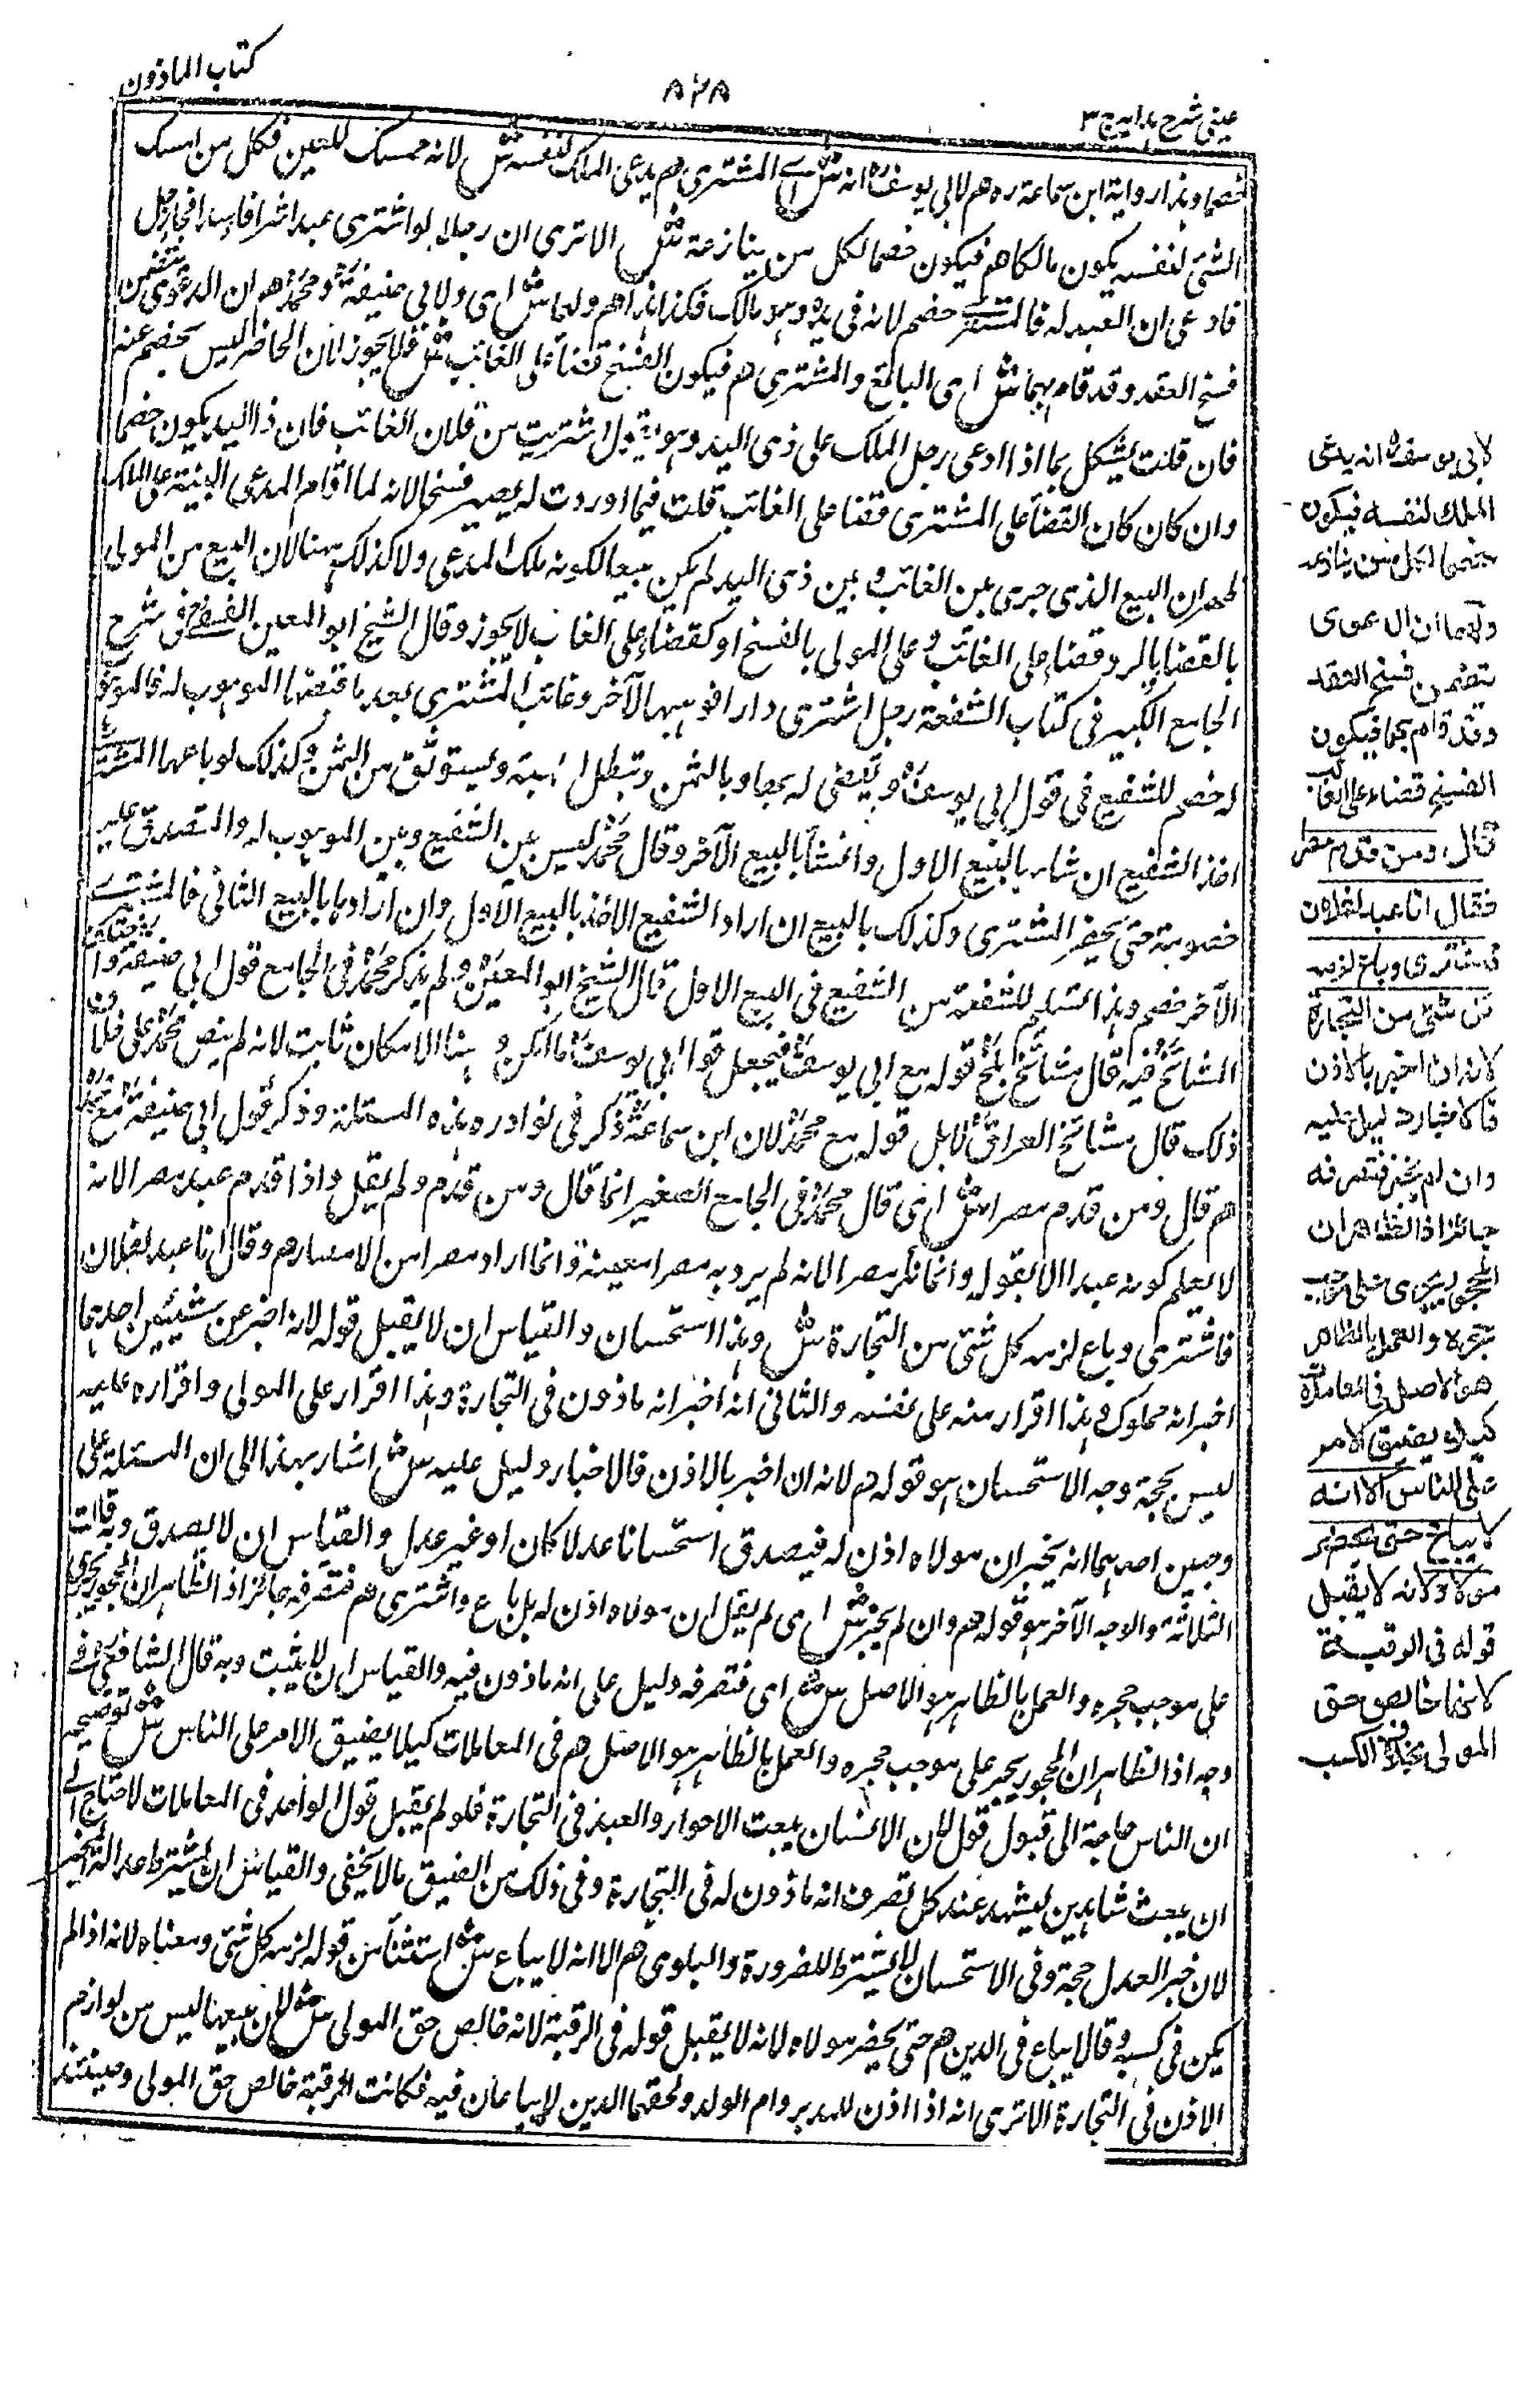 كتاب الماذون
٨٢٨
عينى شرح هدايه ج ٣
خصما وهذا رواية ابن سماعة ره هم لابي يوسف ره انه ش اے المشترى هم يدعى الملك لنفسه ش لانه ممسك للعين فكل من امسك
الشئ لنفسه يكون مالكا هم فيكون خصما لكل من ينازعة ش الا ترى ان رجلا لو اشترى عبدا شراء فاسدا فجاء رجل
فادعى ان العبد له فالمشترى خصم لانه فى يده وهو مالك فكذا هذا هم ولهما ش اى ولابى حنيفة ومحمد هم ان الدعوى تتضمن
فسخ العقد وقد قام بهما ش اى البائع والمشترى هم فيكون الفسخ قضاء على الغائب ش فلا يجوز لان الحاضر ليس بخصم عنه
فان قلت يشكل بما اذا ادعى رجل الملك على ذى اليد وهو يقول اشتريت من فلان الغائب فان ذا اليد يكون خصما
وان كان كان القضاء على المشترى قضاء على الغائب قلت فيما اوردت له يصير فسخا لانه لما اقام المدعى البينة على الملك
ظهر ان البيع الذى جرى بين الغائب وبين ذى اليد لم يكن بيعا لكونه ملك المدعى ولا كذلك هنا لان البيع من المولى
بالقضاء بالرد قضاء على الغائب وعلى المولى بالفسخ او كقضاء على الغائب لا يجوز وقال الشيخ ابو المعين النسفى فى شرح
الجامع الكبير فى كتاب الشفعة رجل اشترى دارا فوهبها لآخر وغاب المشترى بعد ما قبضها الموهوب له فالموهوب
له خصم للشفيع فى قول ابى يوسف ويقضى له بها وبالثمن وتبطل الهبة ويستوثق من الثمن وكذلك لو باعها المشترى
اخذ الشفيع ان شاء بالبيع الاول وان شاء بالبيع الآخر وقال محمد ليس بين الشفيع وبين الموهوب له والمتصدق عليه
خصومة حتى يحضر المشترى وكذلك بالبيع ان اراد الشفيع الاخذ بالبيع الاول وان ارادها بالبيع الثانى فالمشترى
الآخر خصم وهذا التسليم للشفعة من الشفيع فى البيع الاول قال الشيخ ابو المعين ولم يذكر محمد فى الجامع قول ابى حنيفة واختلف
المشائخ فيه قال مشائخ بلخ قوله مع ابى يوسف فيجعل قول ابى يوسف ما امكن وهنا الامكان ثابت لانه لم ينص محمد على خلاف
ذلك قال مشائخ العراق لا بل قوله مع محمد لان ابن سماعة ذكر فى نوادره هذه المسئلة وذكر قول ابى حنيفة مع محمد
هم قال ومن قدم مصرا ش اى قال محمد فى الجامع الصغير انما قال ومن قدم ولم يقل واذا قدم عبد مصر الانه
لا يعلم كونه عبدا الا بقوله وانما نكر مصر الانه لم يرد به مصرا معينة وانما اراد مصرا من الامصار هم وقال انا عبد لفلان
فاشترى وباع لزمه كل شئ من التجارة ش وهذا استحسان والقياس ان لا يقبل قوله لانه اخبر عن شيئين احدهما
اخبر انه مملوك وهذا اقرار منه على نفسه والثانى انه اخبر انه ماذون فى التجارة وهذا اقرار على المولى واقراره عليه
ليس بحجة وجه الاستحسان هو قوله هم لانه ان اخبر بالاذن فالاخبار دليل عليه ش اشار بهذا الى ان المسئلة على
وجهين احدهما انه يخبر ان مولاه اذن له فيصدق استحسانا عدلا كان او غير عدل والقياس ان لا يصدق وبه قالت
الثلاثة والوجه الآخر هو قوله هم وان لم يخبر ش اى لم يقل ان مولاه اذن له بل باع واشترى هم فتصرفه جائز اذ الظاهر ان المحجور يجرى
على موجب حجره والعمل بالظاهر هو الاصل ش اى فتصرفه دليل على انه ماذون فيه والقياس ان لا يثبت وبه قال الشافعى فى
وجه اذ الظاهر ان المحجور يجبر على موجب حجره والعمل بالظاهر هو الاصل هم فى المعاملات كيلا يضيق الامر على الناس ش توضيحه
ان الناس حاجة الى قبول قوله لان الانسان يبعث الاحرار والعبد فى التجارة فلو لم يقبل قول الواحد فى المعاملات لاحتاج الى
ان يبعث شاهدين ليشهد عند كل تصرف انه ماذون له فى التجارة وفى ذلك من الضيق ما لا يخفى والقياس ان يشترط عدالة المخبر
لان خبر العدل حجة وفى الاستحسان لا يشترط للضرورة والبلوى هم الا انه لا يباع ش استثناء من قوله لزمه كل شئ ومعناه لانه اذا لم
يكن فى كسبه وقال لا يباع فى الدين هم حتى يحضر مولاه لانه لا يقبل قوله فى الرقبة لانه خالص حق المولى ش لان بيعها ليس من لوازم
الاذن فى التجارة الا ترى انه اذا اذن للمدبر وام الولد ولحقهما الدين لا يباعان فيه فكانت الرقبة خالص حق المولى وحينئذ
لابي يوسف ره انه يدعى
الملك لنفسه فيكون
خصما لكل من ينازعه
ولهما ان الدعوى
تتضمن فسخ العقد
وقد قام بهما فيكون
الفسخ قضاء على الغائب
قال ومن قدم مصرا
فقال انا عبد لفلان
فاشترى وباع لزمه
كل شئ من التجارة
لانه ان اخبر بالاذن
فالاخبار دليل عليه
وان لم يخبر فتصرفه
جائز اذ الظاهر ان
المحجور يجرى على موجب
حجره والعمل بالظاهر
هو الاصل فى المعاملات
كيلا يضيق الامر
على الناس الا انه
لا يباع حتى يحضر
مولاه لانه لا يقبل
قوله فى الرقبة
لانها خالص حق
المولى بخلاف الكسب